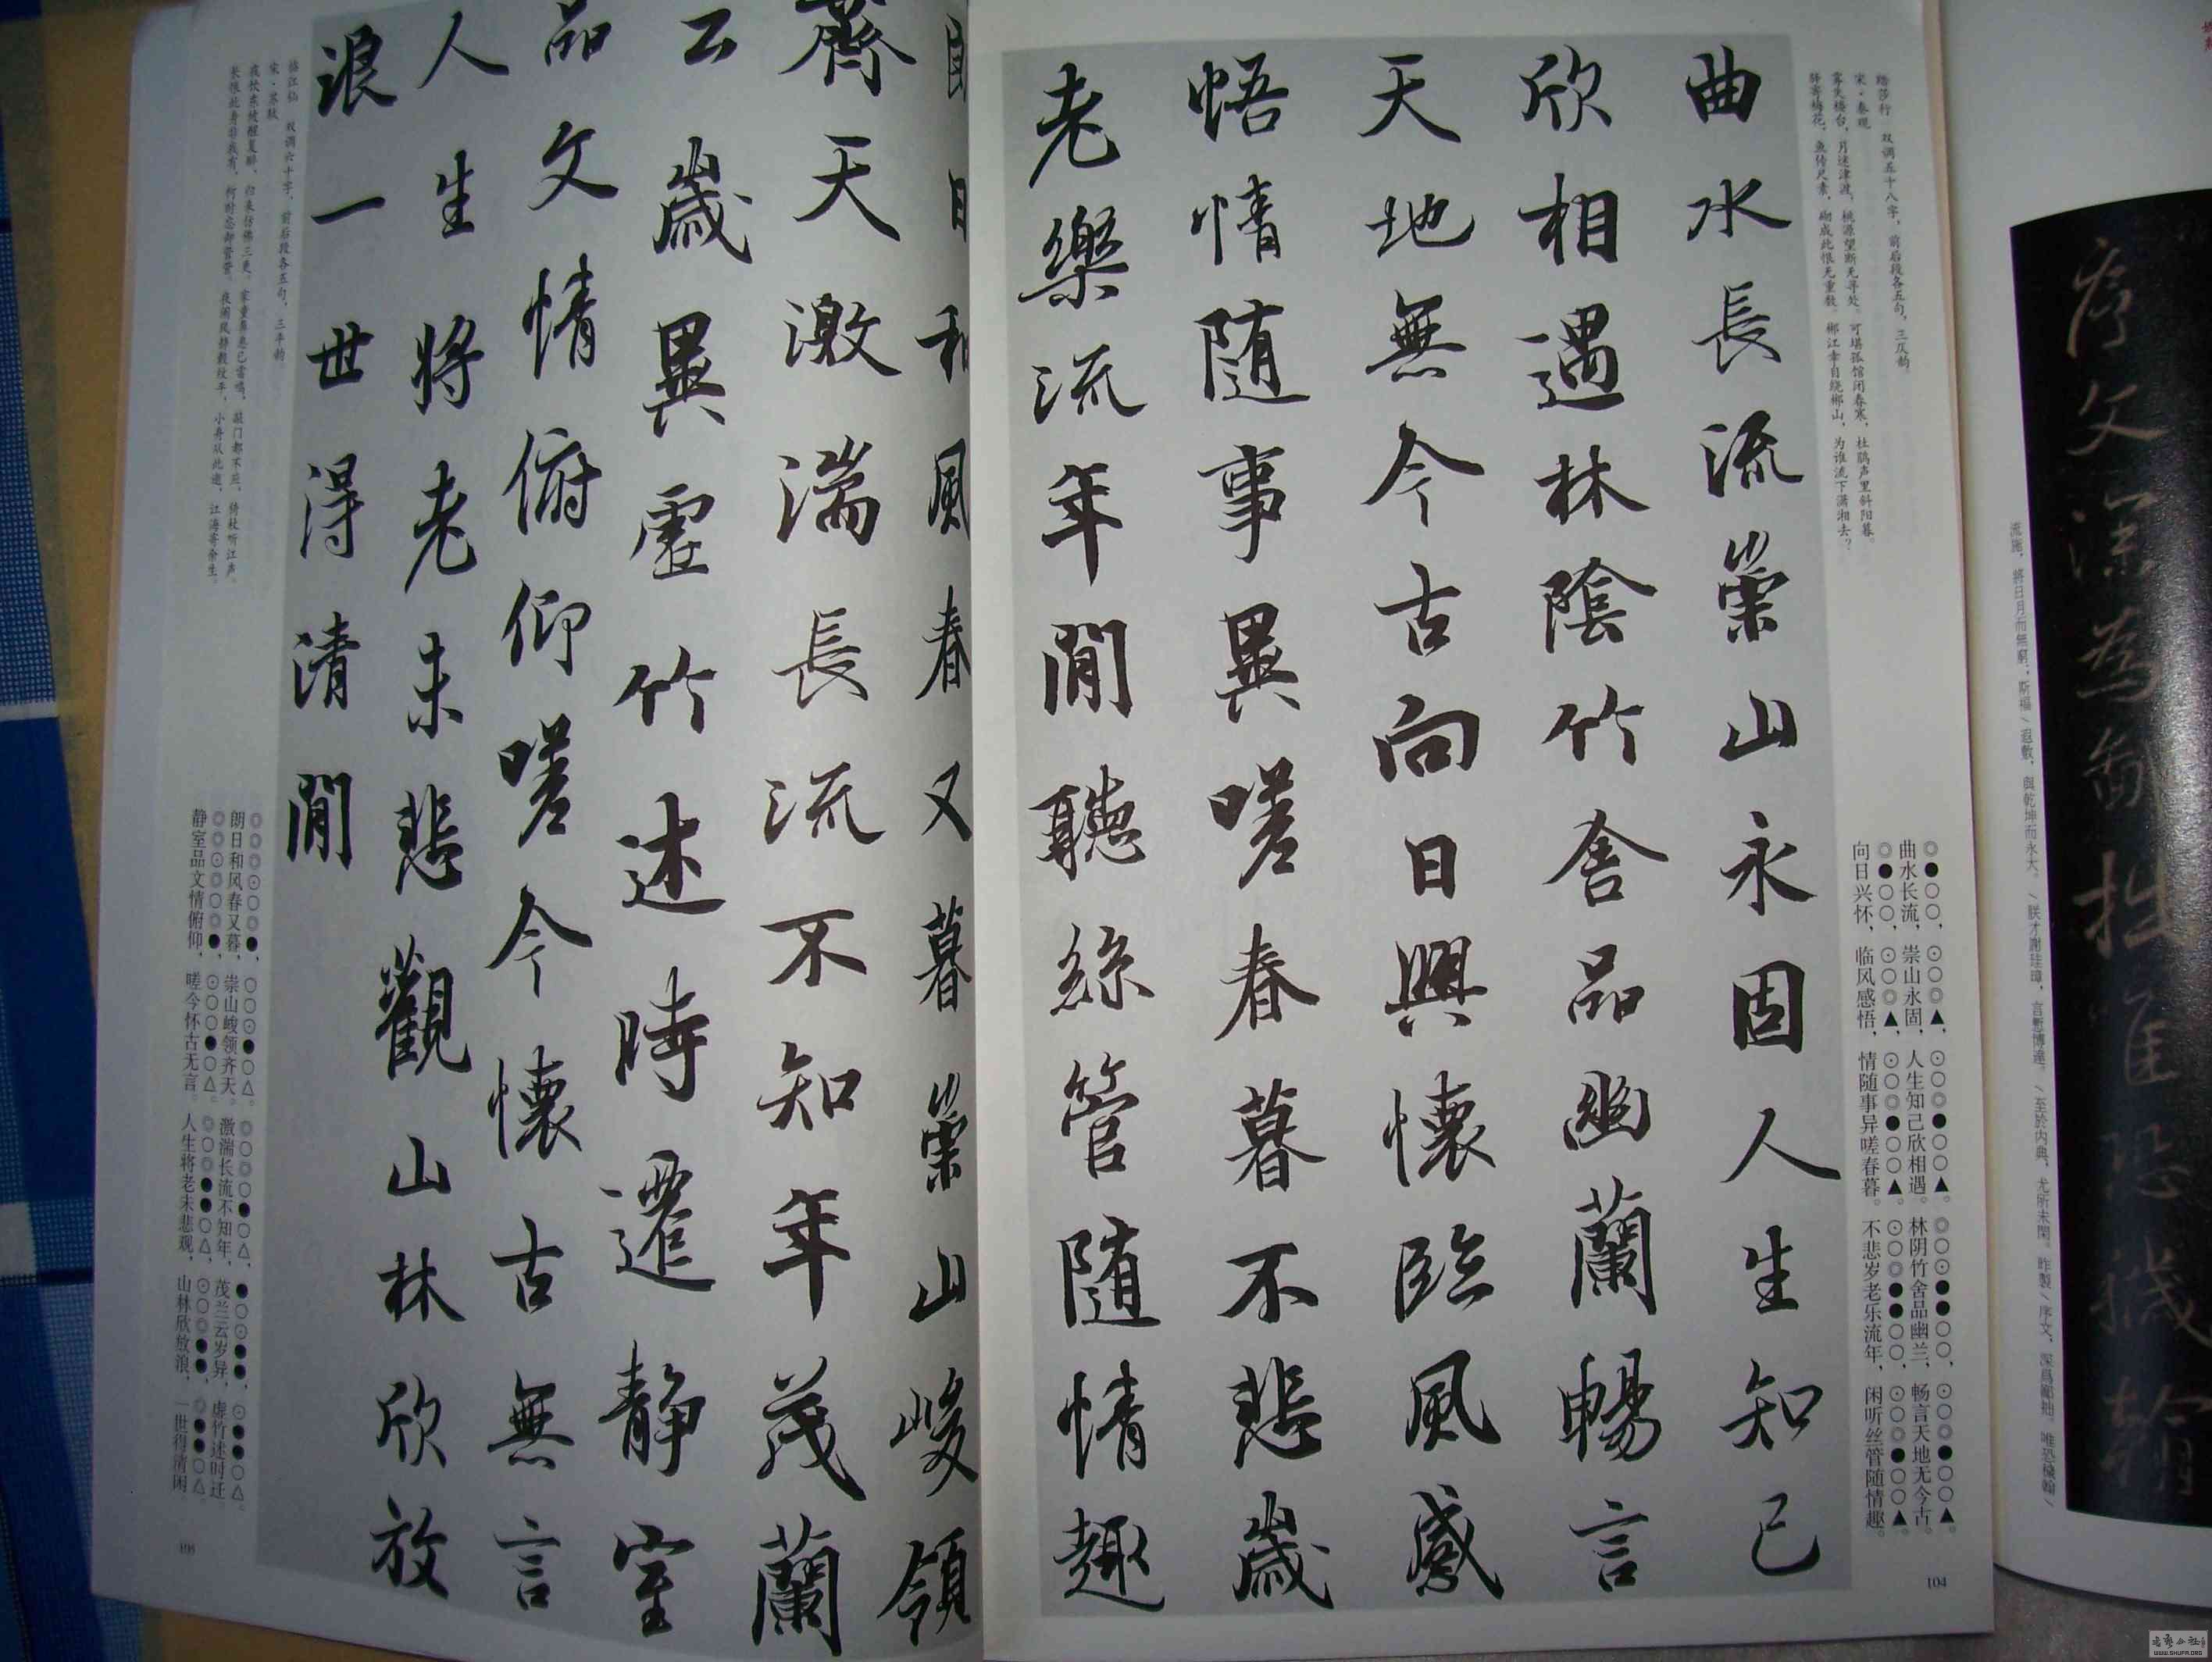 踏莎行 双调五十八字，前后段各五句，三仄韵。
宋·秦观
雾失楼台，月迷津渡，桃源望断无寻处。可堪孤馆闭春寒，杜鹃声里斜阳暮。
驿寄梅花，鱼传尺素，砌成此恨无重数。郴江幸自绕郴山，为谁流下潇湘去？
曲水長流崇山永固人生知己
欣相遇林陰竹舍品幽蘭暢言
天地無今古向日興懷臨風感
悟情随事異嗟春暮不悲歲
老樂流年閒聽絲管随情趣
◎●○○，⊙○○◎▲，⊙○○◎●○○▲。◎○⊙●●○○，⊙○◎●○○▲。
曲水长流，崇山永固，人生知己欣相遇。林阴竹舍品幽兰，畅言天地无今古。
向日兴怀，临风感悟，情随事异嗟春暮。不悲岁老乐流年，闲听丝管随情趣。
104
朗日和風春又暮崇山峻領
齊天激湍長流不知年茂蘭
云歲異虛竹述時遷静室
品文情俯仰嗟今懷古無言
人生將老未悲觀山林欣放
浪一世得清閒
临江仙 双调六十字，前后段各五句，三平韵。
宋·苏轼
夜饮东坡醒复醉，归来仿佛三更。家童鼻息已雷鸣，敲门都不应，倚杖听江声。
长恨此身非我有，何时忘却营营。夜阑风静縠纹平，小舟从此逝，江海寄余生。
朗日和风春又暮，崇山峻领齐天。激湍长流不知年，茂兰云岁异，虚竹述时迁
静室品文情俯仰，嗟今怀古无言。人生将老未悲观，山林欣放浪，一世得清闲
流施，將日月而無窮；斯福遐敷，與乾坤而永大。朕才謝珪璋，言慙博達。至於内典，尤所未閑。昨製序文，深爲鄙拙。唯恐穢翰
序文深為鄙拙唯恐穢翰
WWW.SHUFA.ORG